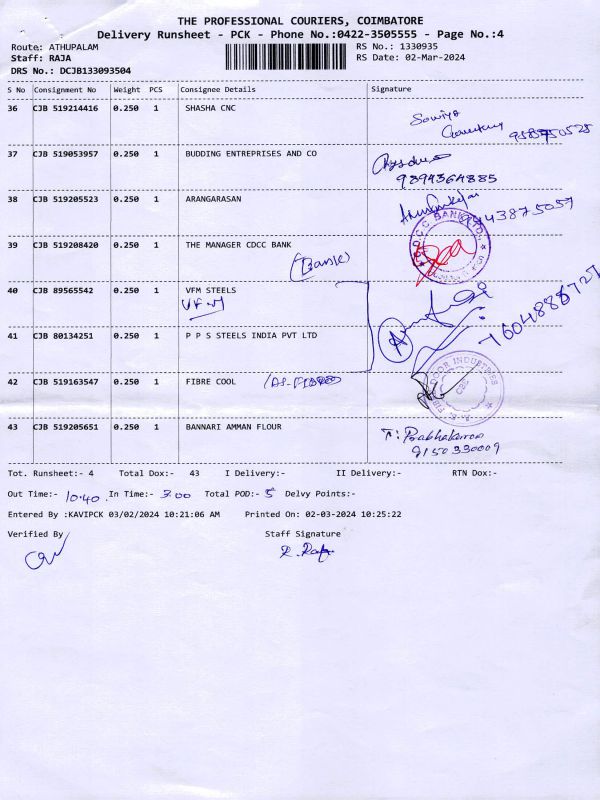 THE PROFESSIONAL COURIERS, COIMBATORE
Delivery Runsheet - PCK - Phone No.:0422-3505555 - Page No.:4
Route: ATHUPALAM RS No.: 1330935
Staff: RAJA RS Date: 02-Mar-2024
DRS No.: DCJB133093504
S No Consignment No Weight PCS Consignee Details Signature
36 CJB 519214416 0.250 1 SHASHA CNC
37 CJB 519053957 0.250 1 BUDDING ENTREPRISES AND CO
9894364885
38 CJB 519205523 0.250 1 ARANGARASAN
39 CJB 519208420 0.250 1 THE MANAGER CDCC BANK
(Bank)
40 CJB 89565542 0.250 1 VFM STEELS
VFM
41 CJB 80134251 0.250 1 P P S STEELS INDIA PVT LTD
42 CJB 519163547 0.250 1 FIBRE COOL
43 CJB 519205651 0.250 1 BANNARI AMMAN FLOUR
9150330009
Tot. Runsheet:- 4 Total Dox:- 43 I Delivery:- II Delivery:- RTN Dox:-
Out Time:- 10.40 In Time:- 3.00 Total POD:- 5 Delvy Points:-
Entered By :KAVIPCK 03/02/2024 10:21:06 AM Printed On: 02-03-2024 10:25:22
Verified By Staff Signature
R. Raja